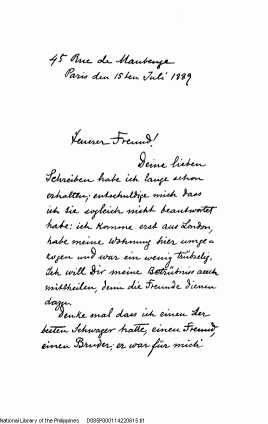 45 Rue de Maubeuge
Paris den 15ten Juli 1889
Teurer Freund!
Deine lieben
Schreiben habe ich lange schon
erhalten; entschuldige mich dass
ich Sie sogleich nicht beantwortet
habe: ich komme erst aus London,
habe meine Wohnung hier umge=
zogen und war ein wenig trübselig.
Ich will Dir meine Betrübniss auch
mittheilen, denn die Freunde dienen
dazu.
Denke mal dass ich einen der
besten Schwager hatte, einen Freund,
einen Bruder; er war für mich
National Library of the Philippines